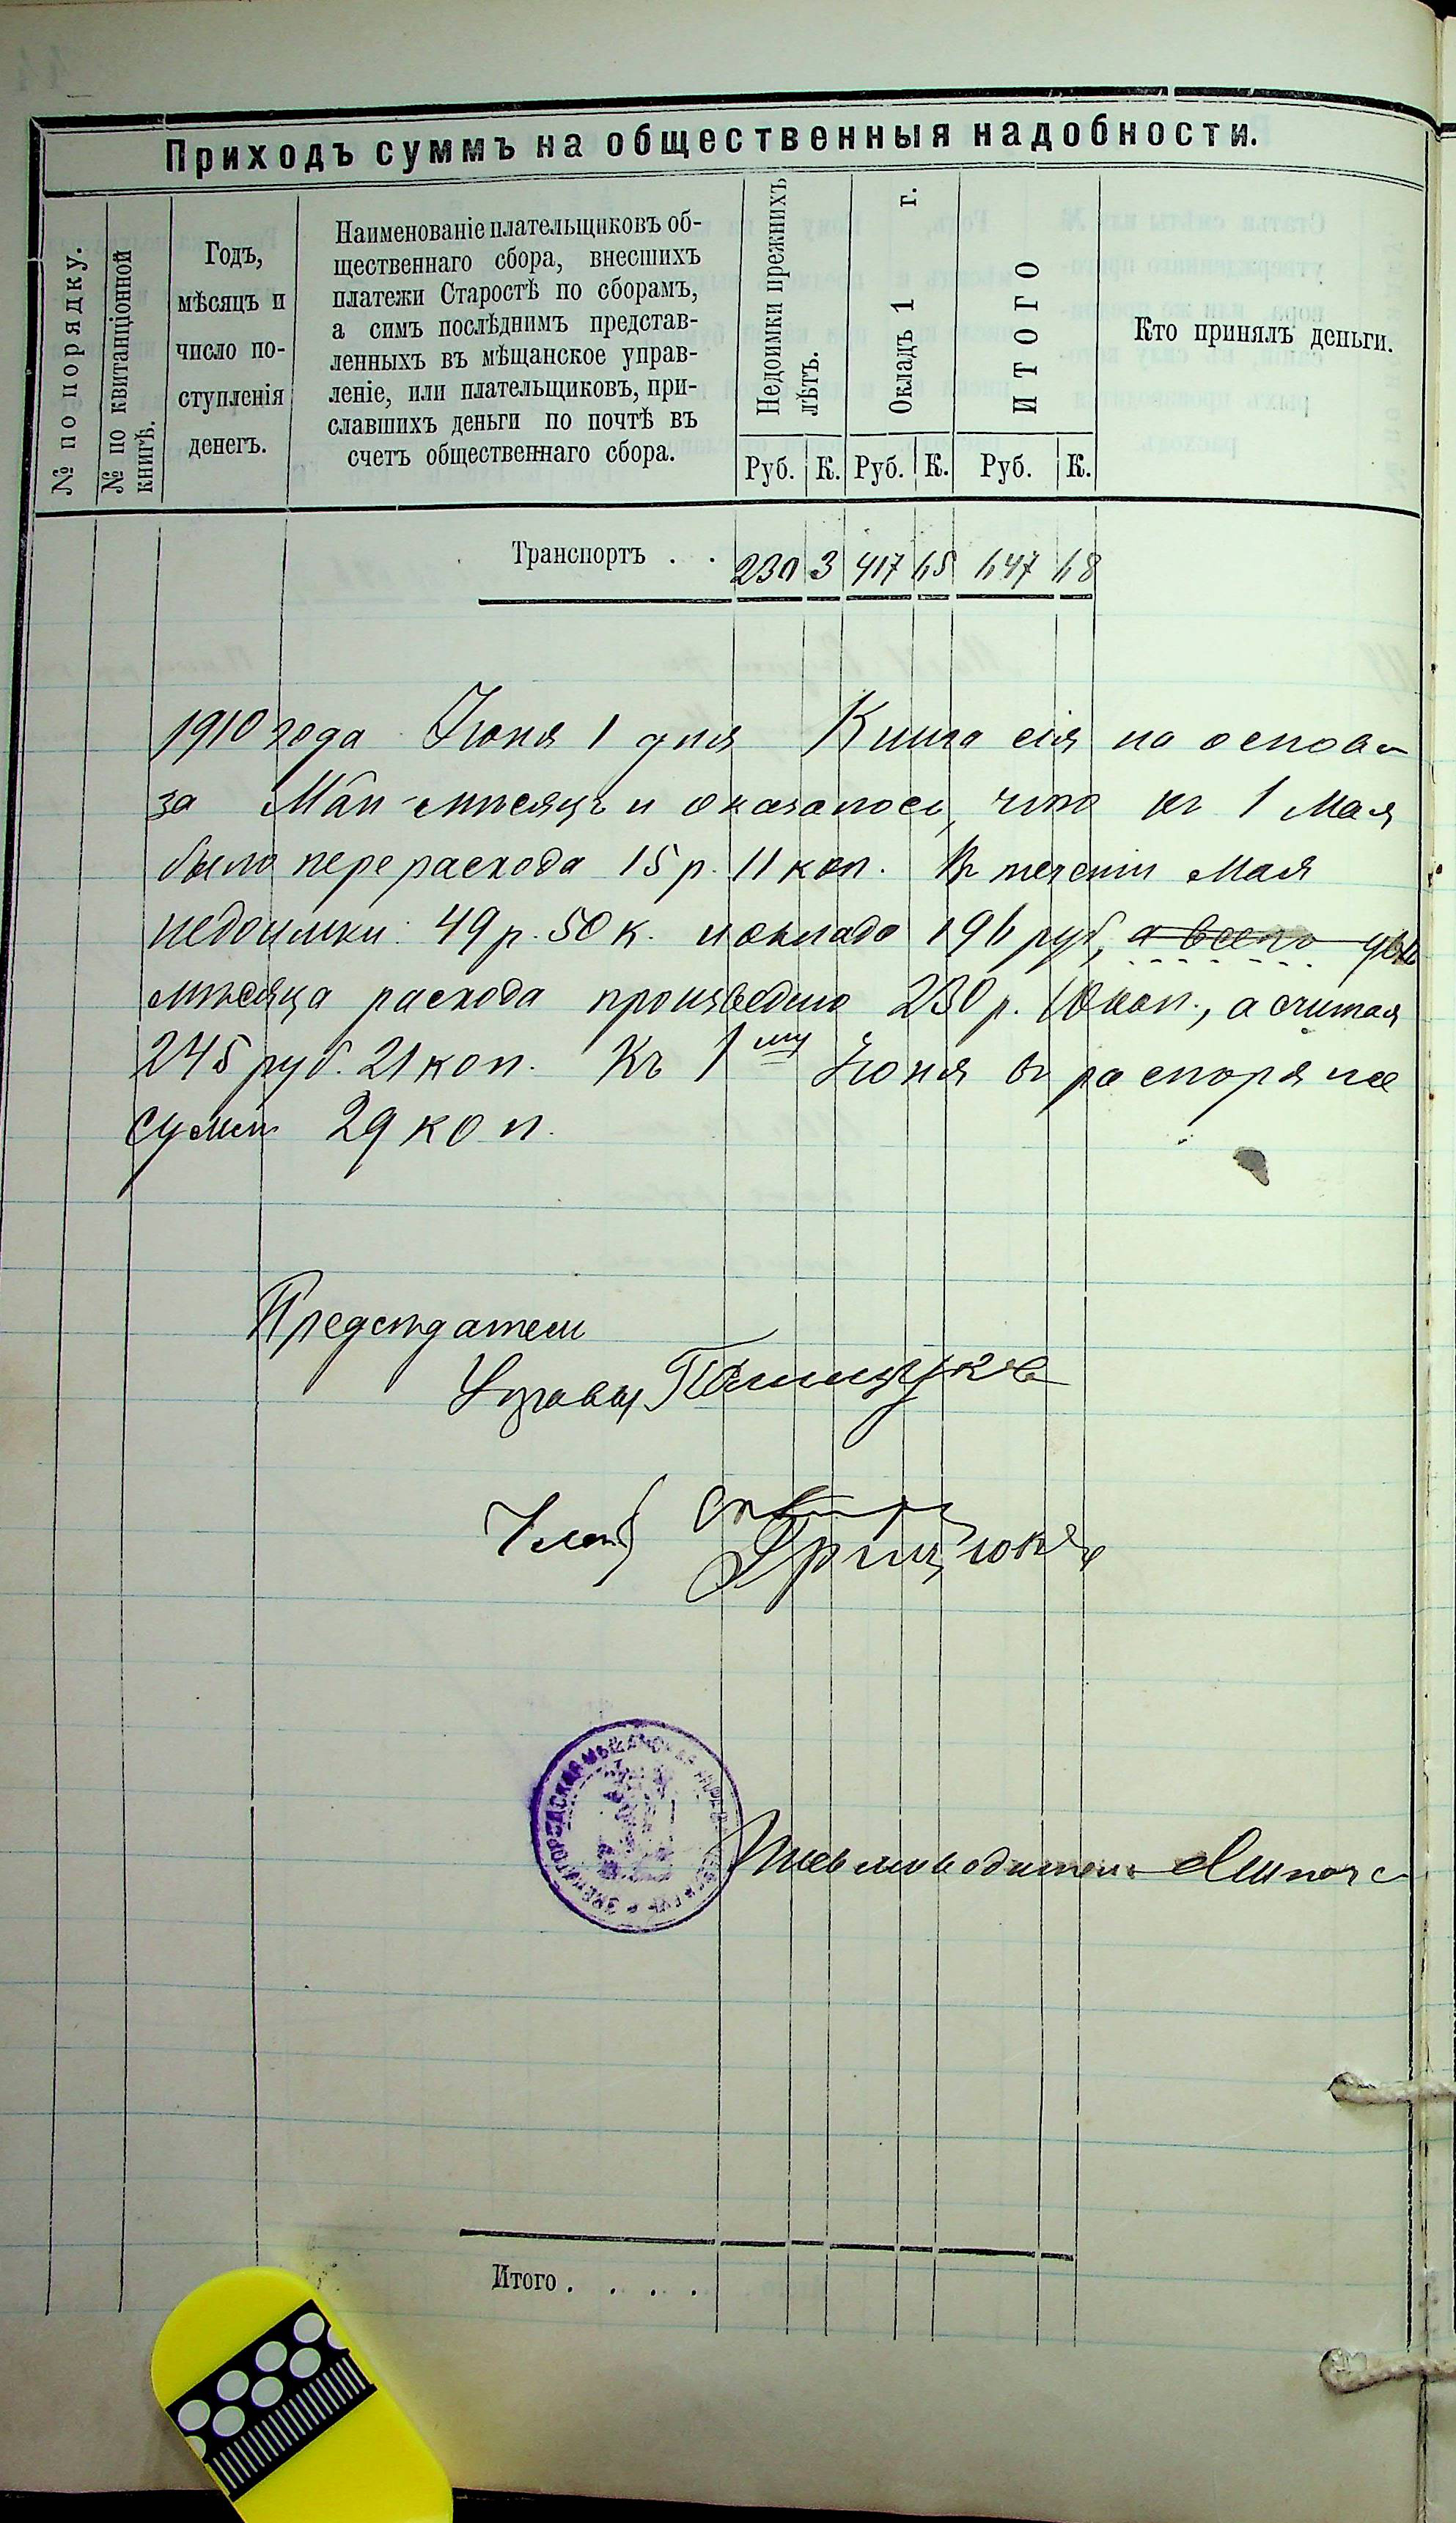 Приходъ суммъ на общественныя надобности.
№ по порядку.
№ по квитанціонной
книгѣ.
Годъ,
мѣсяцъ и
число по-
ступленія
денегъ.
Наименованіе плательщиковъ об-
щественнаго сбора, внесшихъ
платежи Старостѣ по сборамъ,
а симъ послѣднимъ представ-
ленныхъ въ мѣщанское управ-
леніе, или плательщиковъ, при-
славшихъ деньги по почтѣ въ
счетъ общественнаго сбора.
Недоимки прежнихъ
лѣтъ.
Окладъ 1 г.
ИТОГО
Кто принялъ деньги.
Руб. К. Руб. К. Руб. К.
Транспортъ . . 230 3 417 65 647 68
1910 года Іюня 1 дня Книга сія на основа
за Май мѣсяцъ и оказалось, что къ 1 Мая
было перерасхода 15 р. 11 коп. Въ теченіи Мая
недоимки 49 р. 50 к. и оклада 196 руб, а всего
мѣсяца расхода произведено 230 р. 10 коп., а считая
245 руб. 21 коп. Къ 1му Іюня въ распоряже
суммъ 29 коп.
Предсѣдатель
Управы
Члены
Грицюкъ
Письмоводитель
Итого . . . .